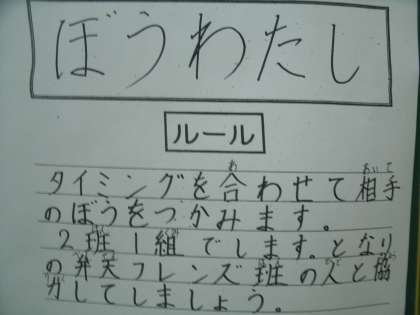 ぼうわたし
ルール
タイミングを合わせて相手
のぼうをつかみます。
2班1組でします。となり
の弁天フレンズ班の人と協
力してしましょう。